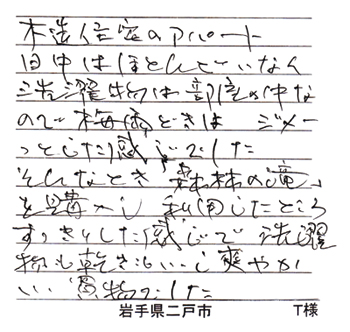 木造住宅のアパート
日中はほとんどいなく
洗濯物は部屋の中な
ので梅雨どきは ジメー
っとした感じでした
そんなとき「森林の滝」
を購入し 利用したところ
すっきりした感じで洗濯
物も乾きもいいし爽やか
いい買物でした
岩手県二戸市 T様